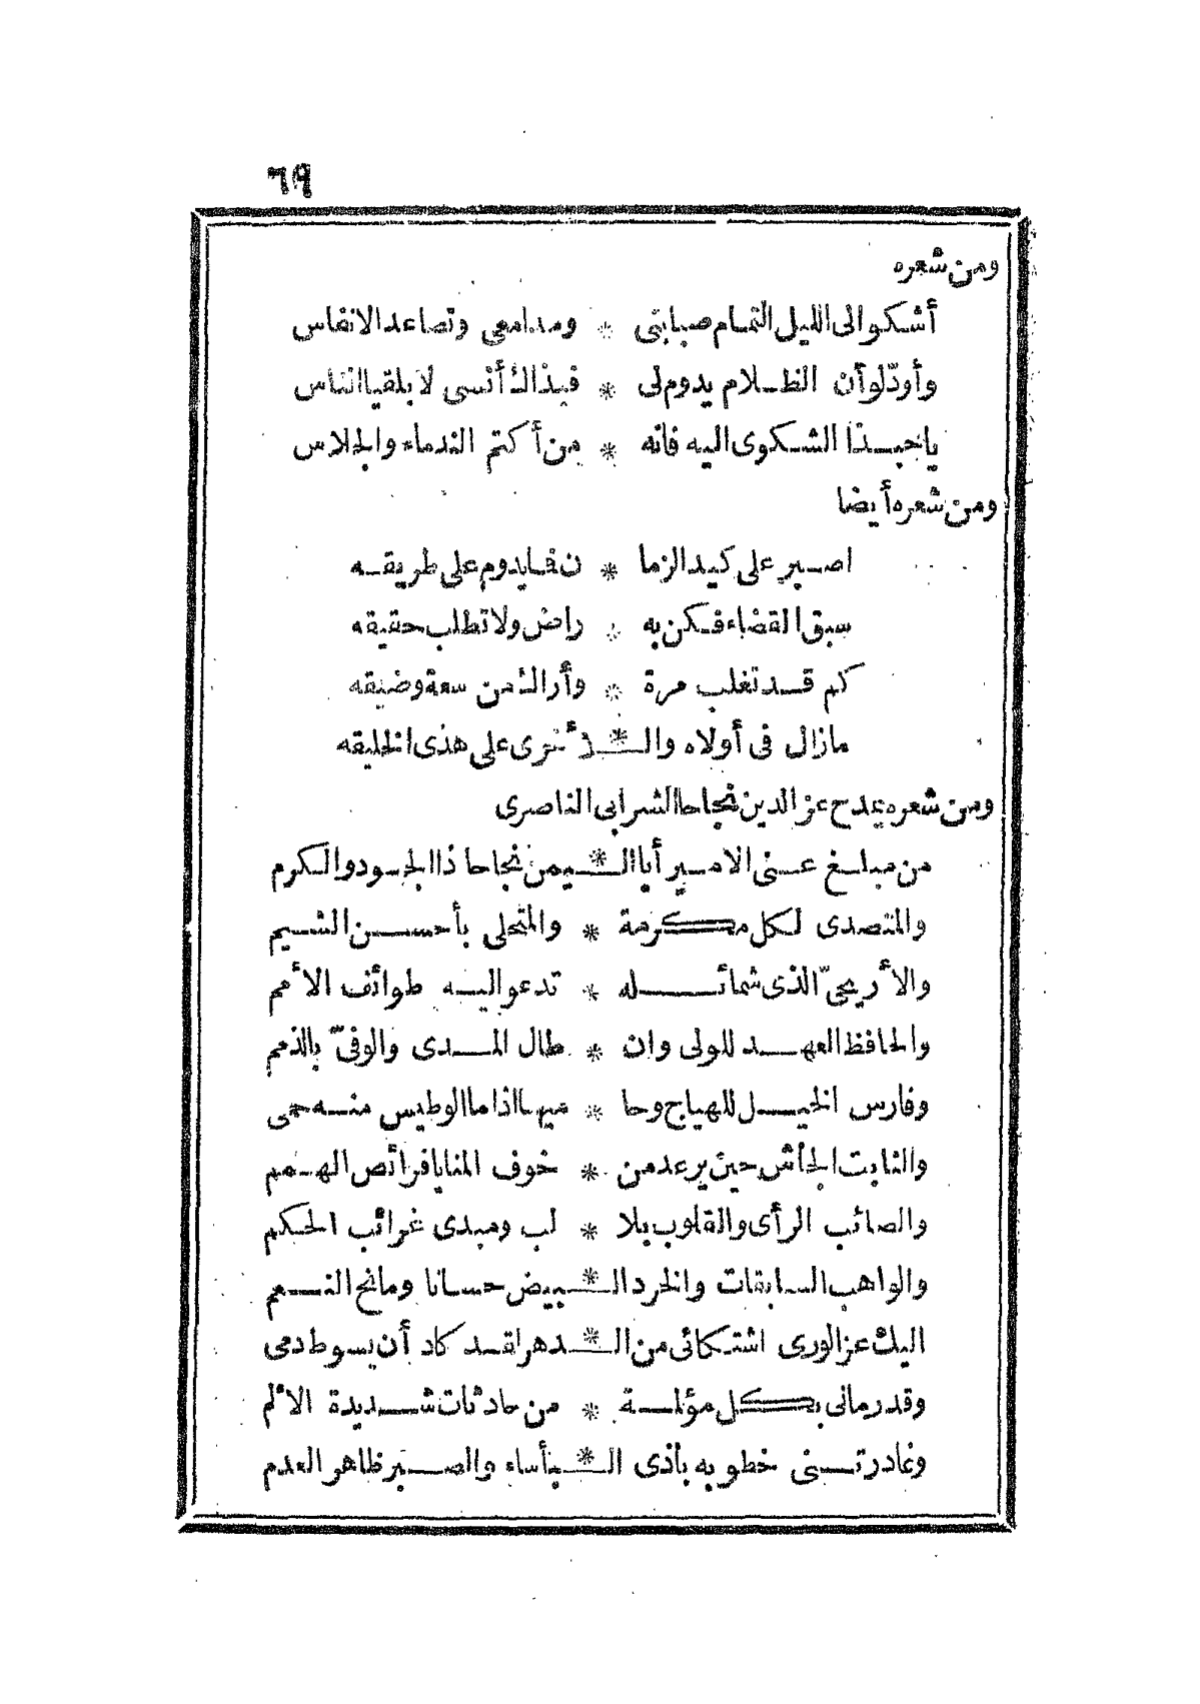 ٦٩
ومن شعره
أشكو الى الليل التمام صبابتى * ومدامعى وتصاعد الانفاس
وأودّ لو أن الظلام يدوم لى * فبذاك أنسى لا بلقيا الناس
يا حبذا الشكوى اليه فانه * من أكتم الندماء والجلاس
ومن شعره أيضا
اصبر على كيد الزما * ن فما يدوم على طريقه
سبق القضاء فكن به * راض ولا تطلب حقيقه
كم قد تغلب مرة * وأراك من سعة وضيقه
مازال فى أولاه والـ * أخرى على هذى الخليقه
ومن شعره يمدح عز الدين نجاحا الشرابى الناصرى
من مبلغ عنى الامير أبا الـ * يمن نجاحا ذا الجود والكرم
والمتصدى لكل مكرمة * والمتحلى بأحسن الشيم
والأريحىّ الذى شمائله * تدعو اليه طوائف الأمم
والحافظ العهد للولى وان * طال المدى والوفىّ بالذمم
وفارس الخيل للهياج وحا * ميها اذا ما الوطيس منه حمى
والثابت الجأش حين يرعد من * خوف المنايا فرائص الهمم
والصائب الرأى والقلوب بلا * لب ومبدى غرائب الحكم
والواهب السابقات والخرد الـ * بيض حسانا ومانح النعم
اليك عز الورى اشتكائى من الـ * دهر لقد كاد أن يسوط دمى
وقد رمانى بكل مؤلمة * من حادثات شديدة الألم
وغادرتنى خطوبه بأذى الـ * بأساء والصبر ظاهر العدم